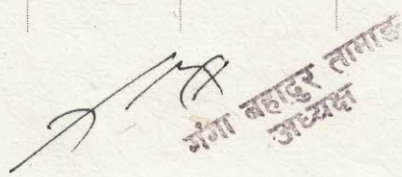 गंगा बहादुर तामाङ
अध्यक्ष